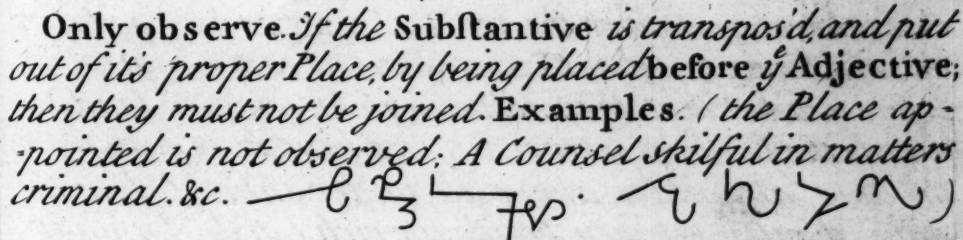 Only observe. If the Subſtantive is transpos'd, and put
out of it's proper Place, by being placed before yͤ Adjective;
then they must not be joined. Examples. (the Place ap-
-pointed is not observed: A Counsel skilful in matters
criminal. &c.